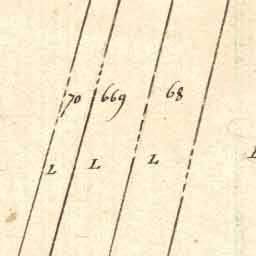 70 669 68
L L L L